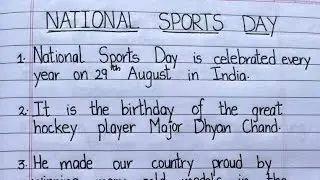 NATIONAL SPORTS DAY
1. National Sports Day is celebrated every
year on 29th August in India.
2. It is the birthday of the great
hockey player Major Dhyan Chand.
3. He made our country proud by
winning many gold medals in the